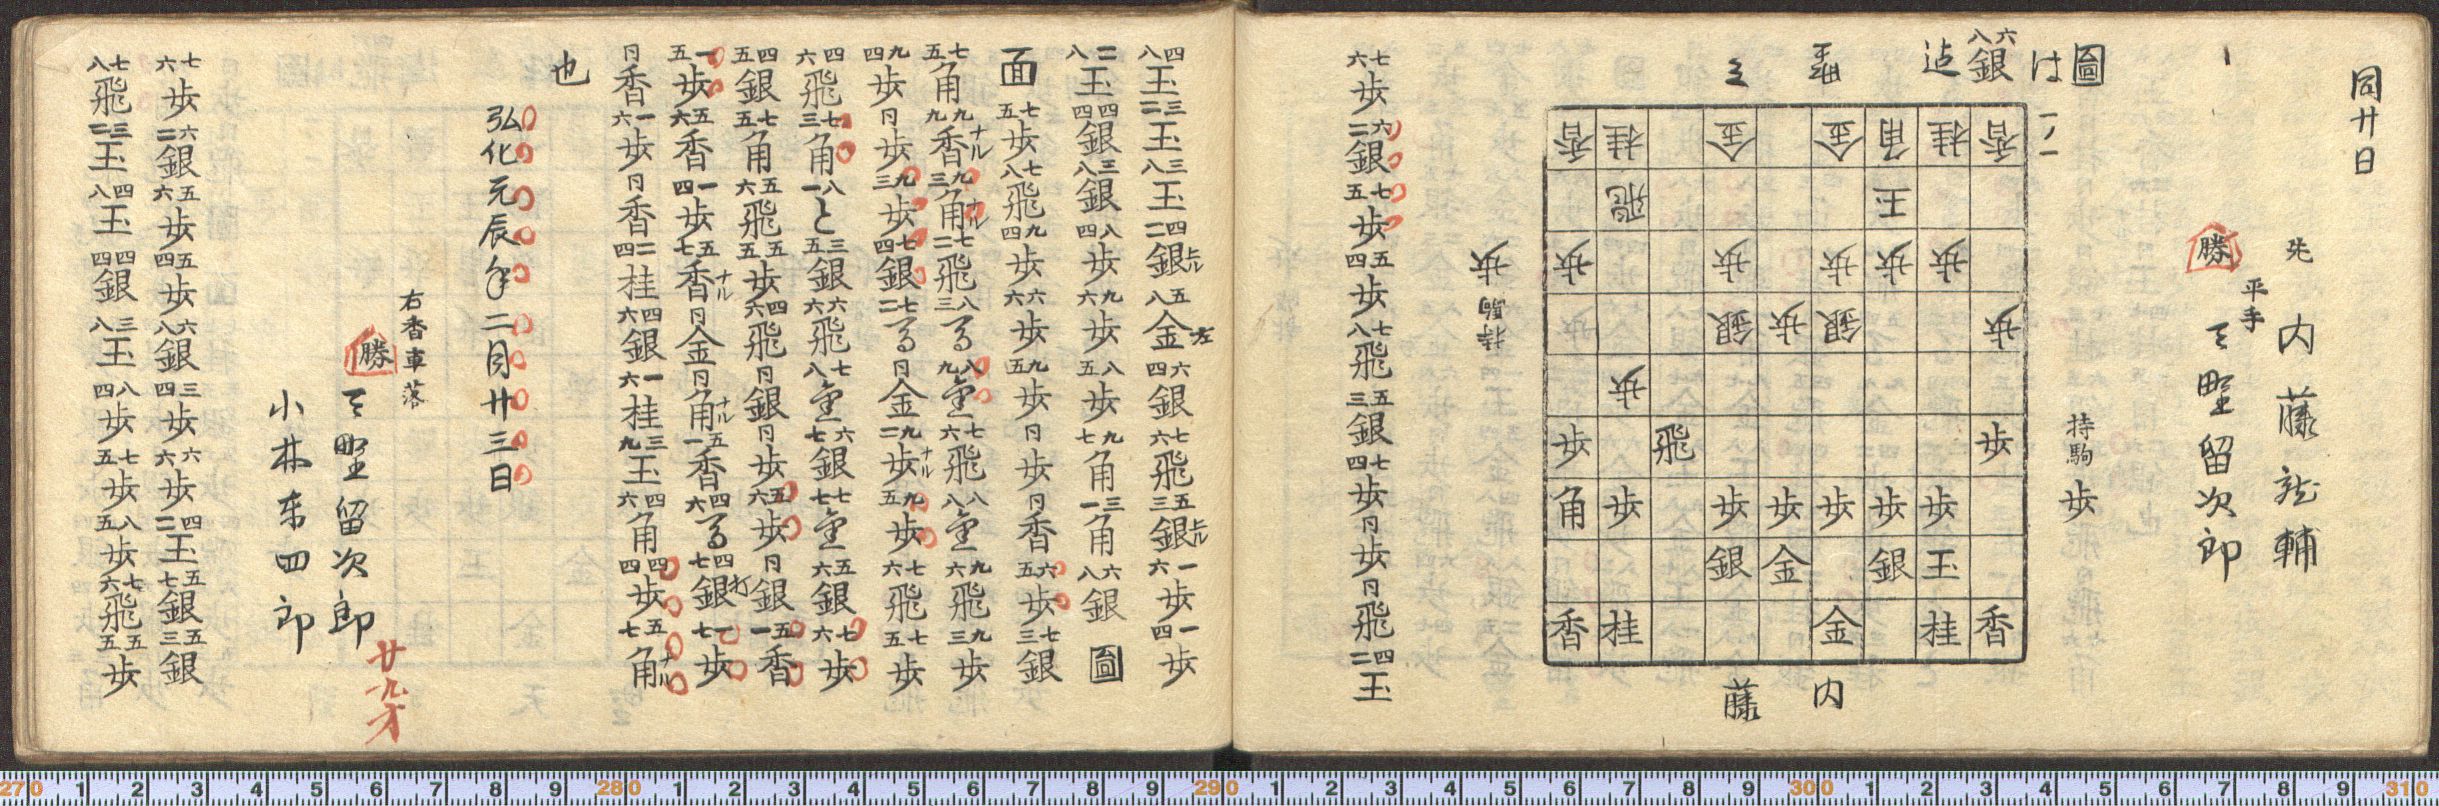 同廿日
先 内藤輔
平手
勝 天野留次郎
圖は八六銀迄
持駒 歩
香桂金金角桂香
飛玉
歩歩歩歩歩
歩銀歩銀歩
歩
歩飛歩
角歩歩歩歩歩歩
銀金銀玉
香桂金桂香
内藤
持駒 歩
七六歩 六二銀 七五歩 五四歩 七八飛 五三銀 七四歩 同歩 同飛 四二玉
四八玉 三二玉 三八玉 四二銀上ル 五八金左 六四銀 七六飛 五三銀上ル 一六歩 一四歩
二八玉 四四銀 三八銀 八四歩 九六歩 八五歩 九七角 三一角 六八銀 圖
面 七五歩 七八飛 九四歩 六六歩 九五歩 同歩 同香 六五歩 七三銀
七五角 九九香ナル 九三角ナル 七二飛 八三馬 八九 七六飛 八八 九六飛 九三歩
九四歩 同歩 九三歩 七四銀 七二馬 同金 九二歩ナル 九五歩 七六飛 七五歩
四六飛 七三角 八一と 三五銀 六六飛 七八 六七銀 七七 五六銀 七六歩
四五銀 七五角 五六飛 五五歩 四六飛 同銀 同歩 五六歩 同銀 五一香
一五歩 五六香 一四歩 五七香ナル 同金 同角ナル 五一香 四六馬 四七銀打 一七歩
同香 一六歩 同香 二四桂 四六銀 一六桂 三九玉 四六角 四四歩 五七角ナル
也
弘化元辰年二月廿三日
右香車落
勝 天野留次郎 廿九才
小林東四郎
七六歩 六二銀 五六歩 五四歩 六八銀 三四歩 六六歩 四二玉 五七銀 五三銀
七八飛 三二玉 四八玉 四四銀 三八玉 八四歩 七五歩 八五歩 七六飛 五五歩